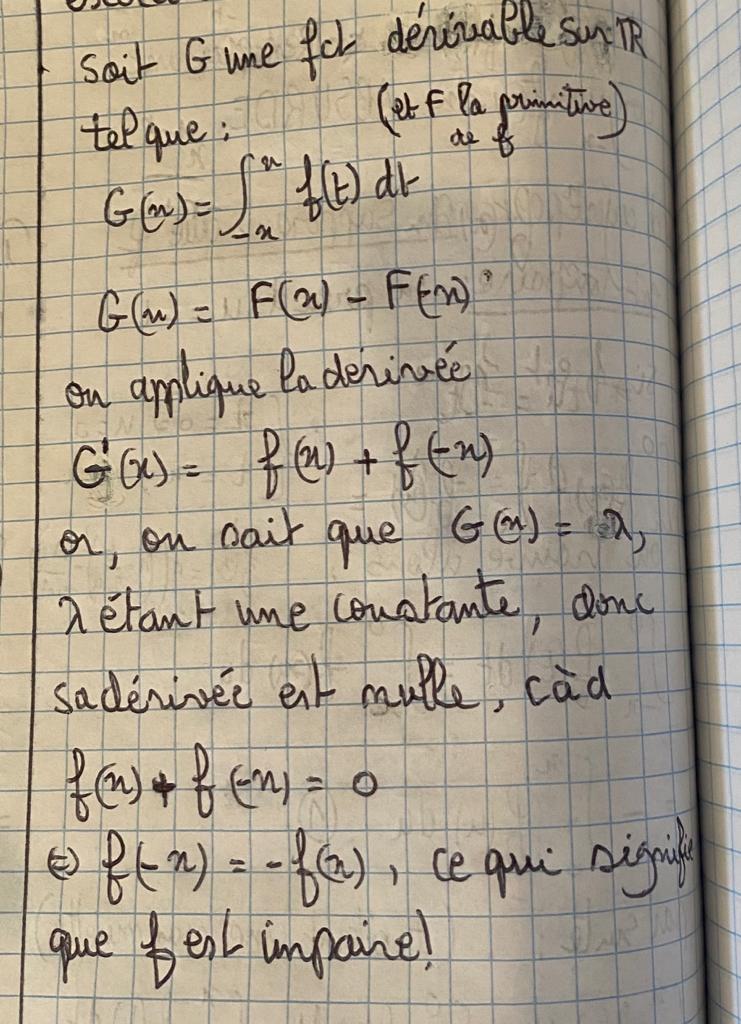 soit G une fct dérivable sur ℝ
tel que : (et F la primitive)
de f
G(x) = ∫_{-x}^{x} f(t) dt
G(x) = F(x) - F(-x)
on applique la dérivée
G'(x) = f(x) + f(-x)
or, on sait que G(x) = λ,
λ étant une constante, donc
sa dérivée est nulle, càd
f(x) + f(-x) = 0
⇔ f(-x) = -f(x), ce qui signifie
que f est impaire!